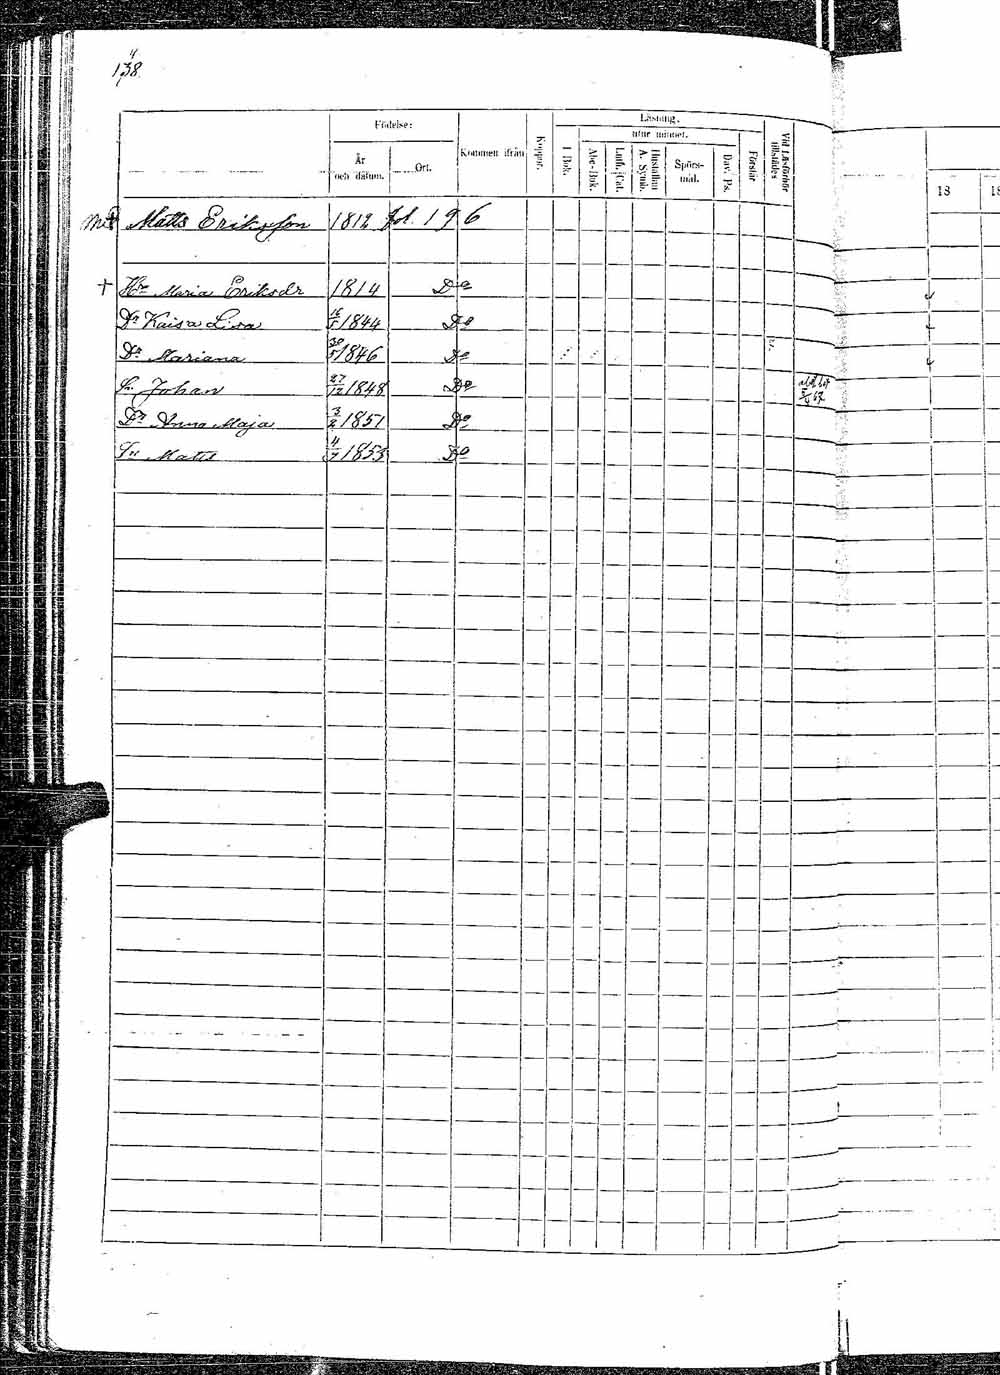 4
138
Födelse:
År och dátum.
Ort.
Kommen ifrån
Koppor.
Läsning.
utur minnet.
I Bok.
Abc-Bok.
Luth. Cat.
Hustaflan A. Symb.
Spörs-mål.
Dav. Ps.
Förstår
Vid Läsförhör tillstädes
18 18
Matts Eriksson 1812 fol. 196
† Hu Maria Eriksdr 1814 Do
Dr Kaisa Lisa 16/5 1844 Do
Dr Mariana 30/5 1846 Do
Sn Johan 27/12 1848 Do
Dr Anna Maja 3/2 1851 Do
Sn Matts 4/7 1853 Do